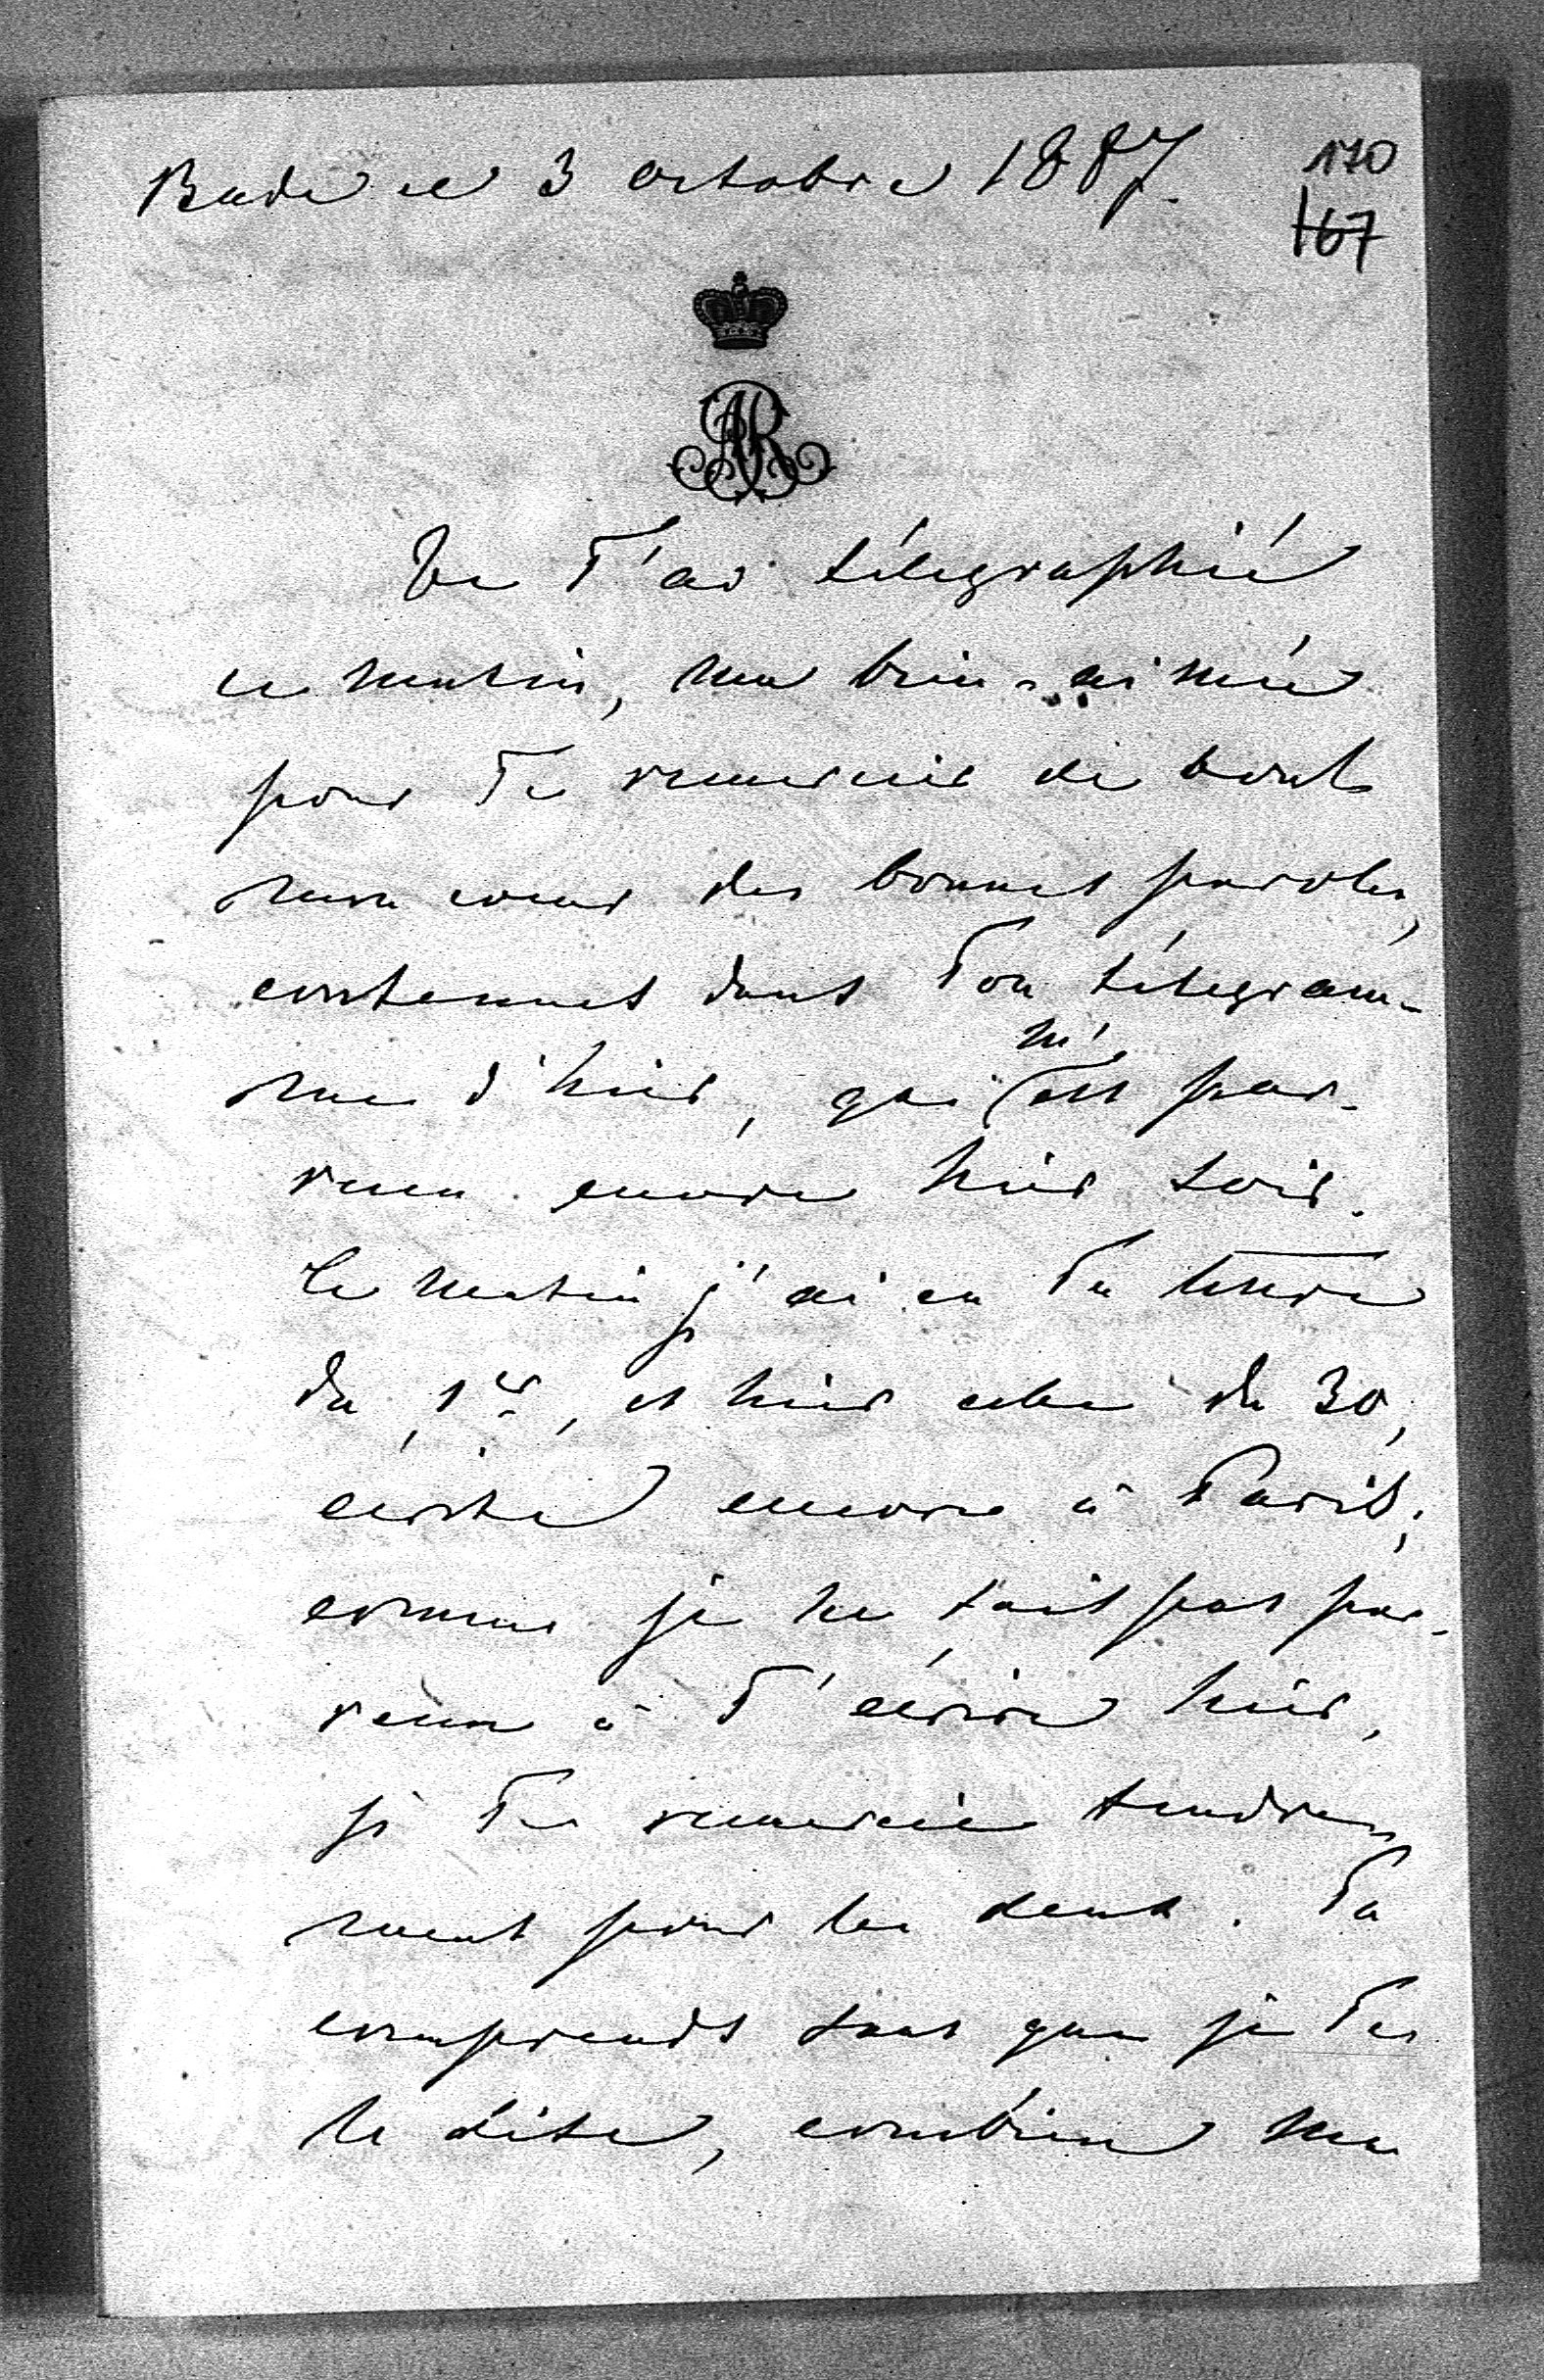 Bade ce 3 octobre 1887.
170
167
AR
Je T'ai télégraphié
ce matin, ma bien-aimée
pour Te remercier de tout
mon cœur des bonnes paroles,
contenues dans Ton télégram-
me d'hier, qui m'est par-
venu encore hier soir.
Ce matin j'ai eu Ta lettre
du 1er, et hier celle du 30,
écrite encore à Paris;
comme je ne suis pas par-
venu à T'écrire hier,
je Te remercie tendre-
ment pour les deux. Tu
comprends sans que je Te
le dise, combien me